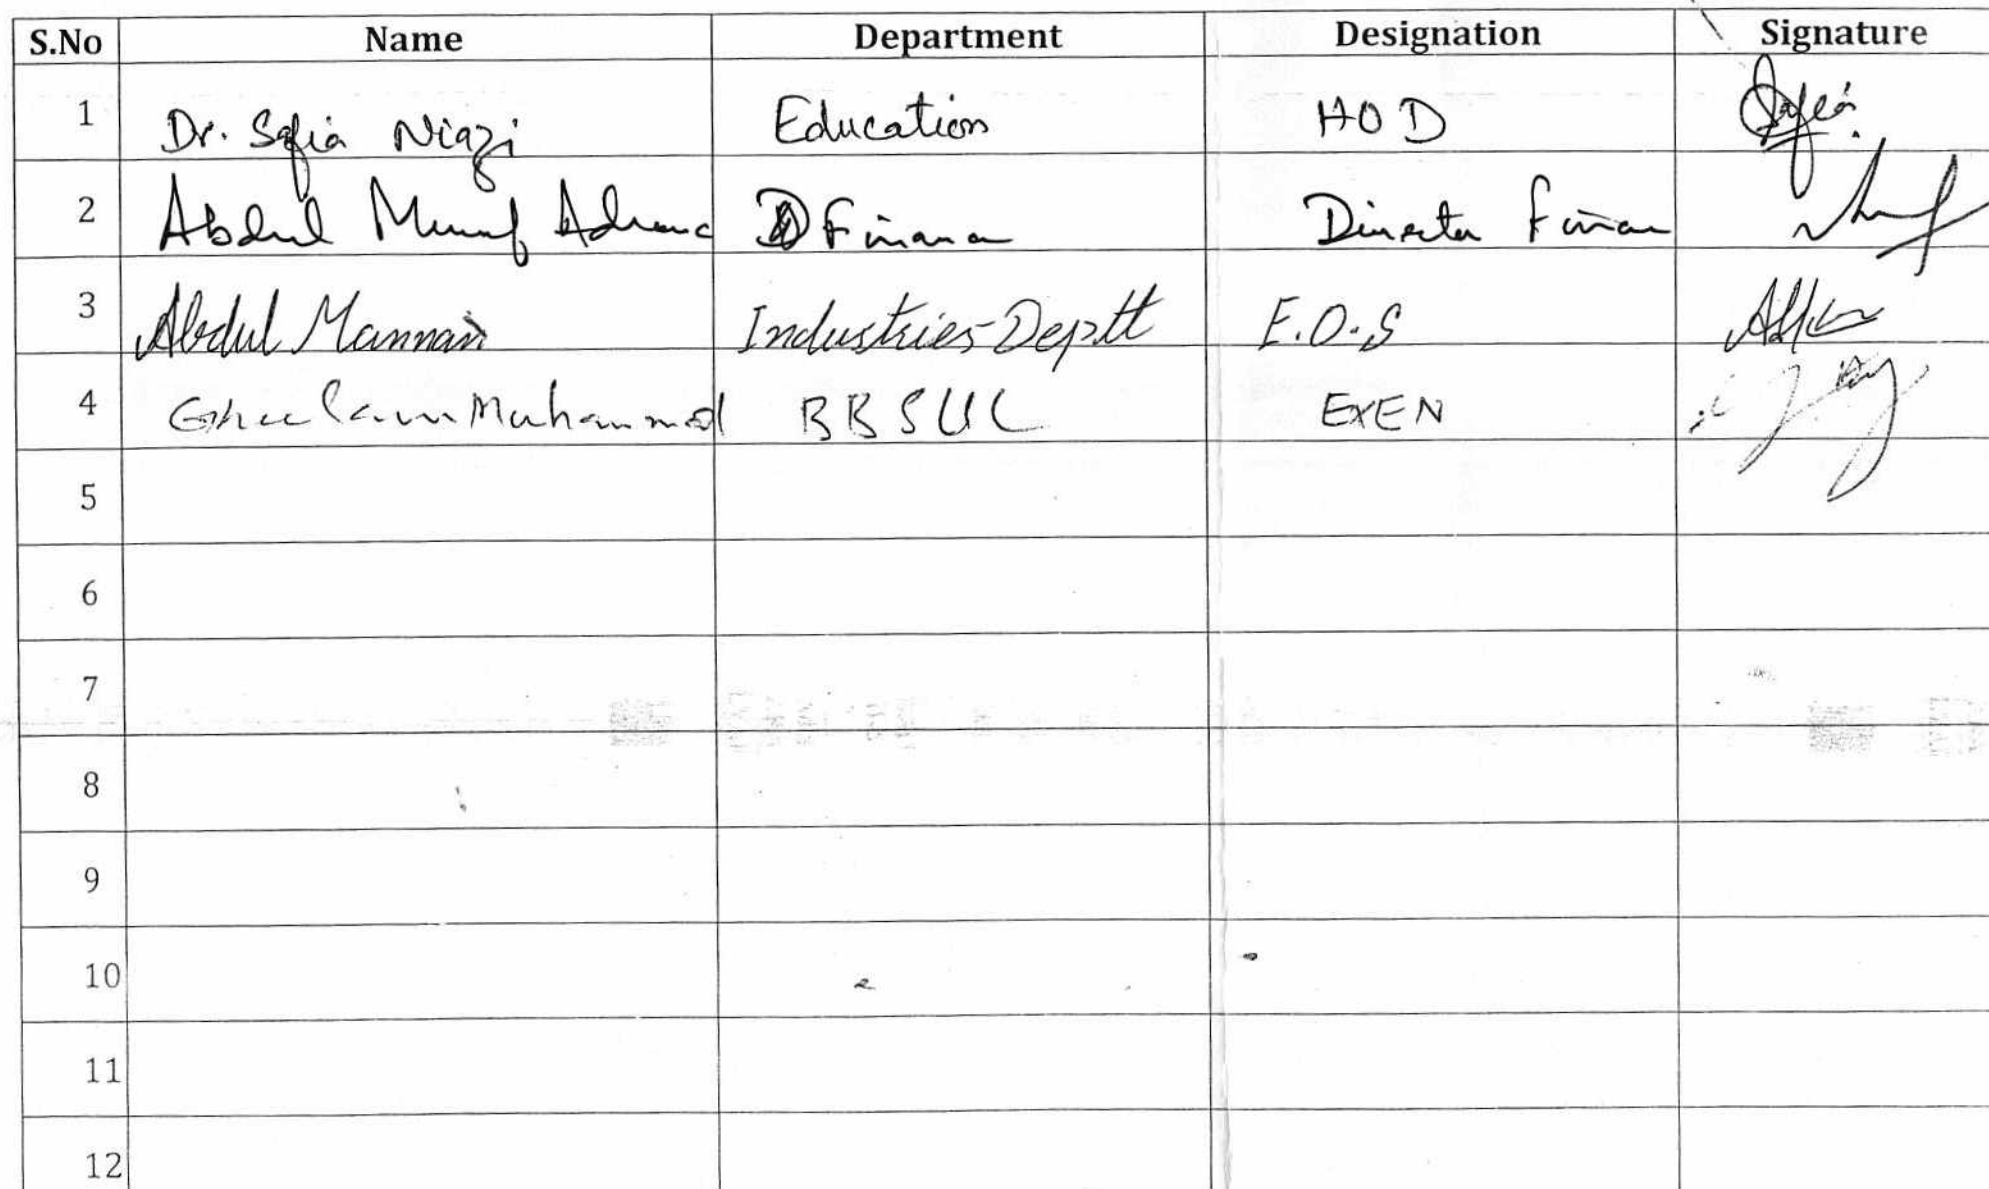 S.No Name Department Designation Signature
1 Dr. Safia Niazi Education HOD Safia
2 Abdul Munaf Finance Director Finance
3 Abdul Mannan Industries Deptt E.O.S
4 Ghulam Muhammad BBSUL EXEN
5
6
7
8
9
10
11
12